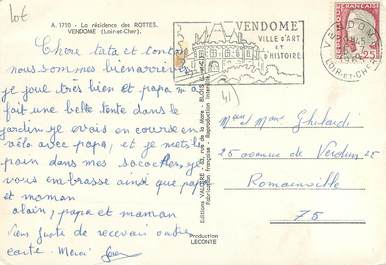 10€
A. 1710 - La résidence des ROTTES.
VENDOME (Loir-et-Cher).
Chère tata et tonton
nous sommes bien arrivés
je joue très bien et papa m'a
fait une belle tente dans le
jardin je vais en course en
vélo avec papa, et je mets le
pain dans mes sacoches, je
vous embrasse ainsi que papa
et maman
alain, papa et maman
Viens juste de recevoir votre
carte. Merci
VENDOME
VILLE D'ART
ET
D'HISTOIRE
VENDOME
LOIR-ET-CHER
0,25
41
Mr et Mme Ghilardi
25 avenue de Verdun 25
Romainville
75
Fabrication française - Reproduction interdite
Production
LECONTE